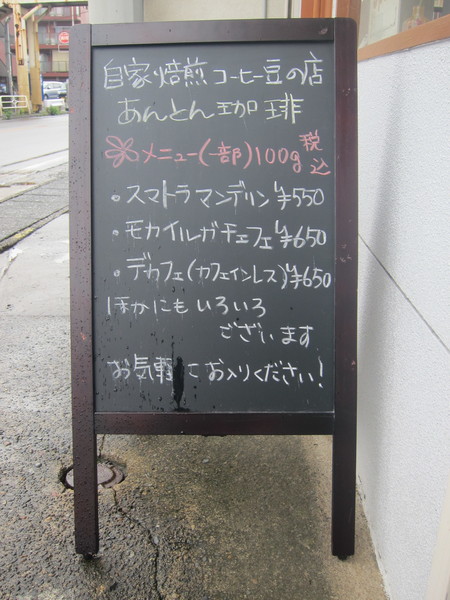 自家焙煎コーヒー豆の店
あんとん珈琲
メニュー(一部)100g税込
・スマトラマンデリン ¥550
・モカイルガチェフェ ¥650
・デカフェ(カフェインレス)¥650
ほかにもいろいろ
ございます
お気軽にお入りください!